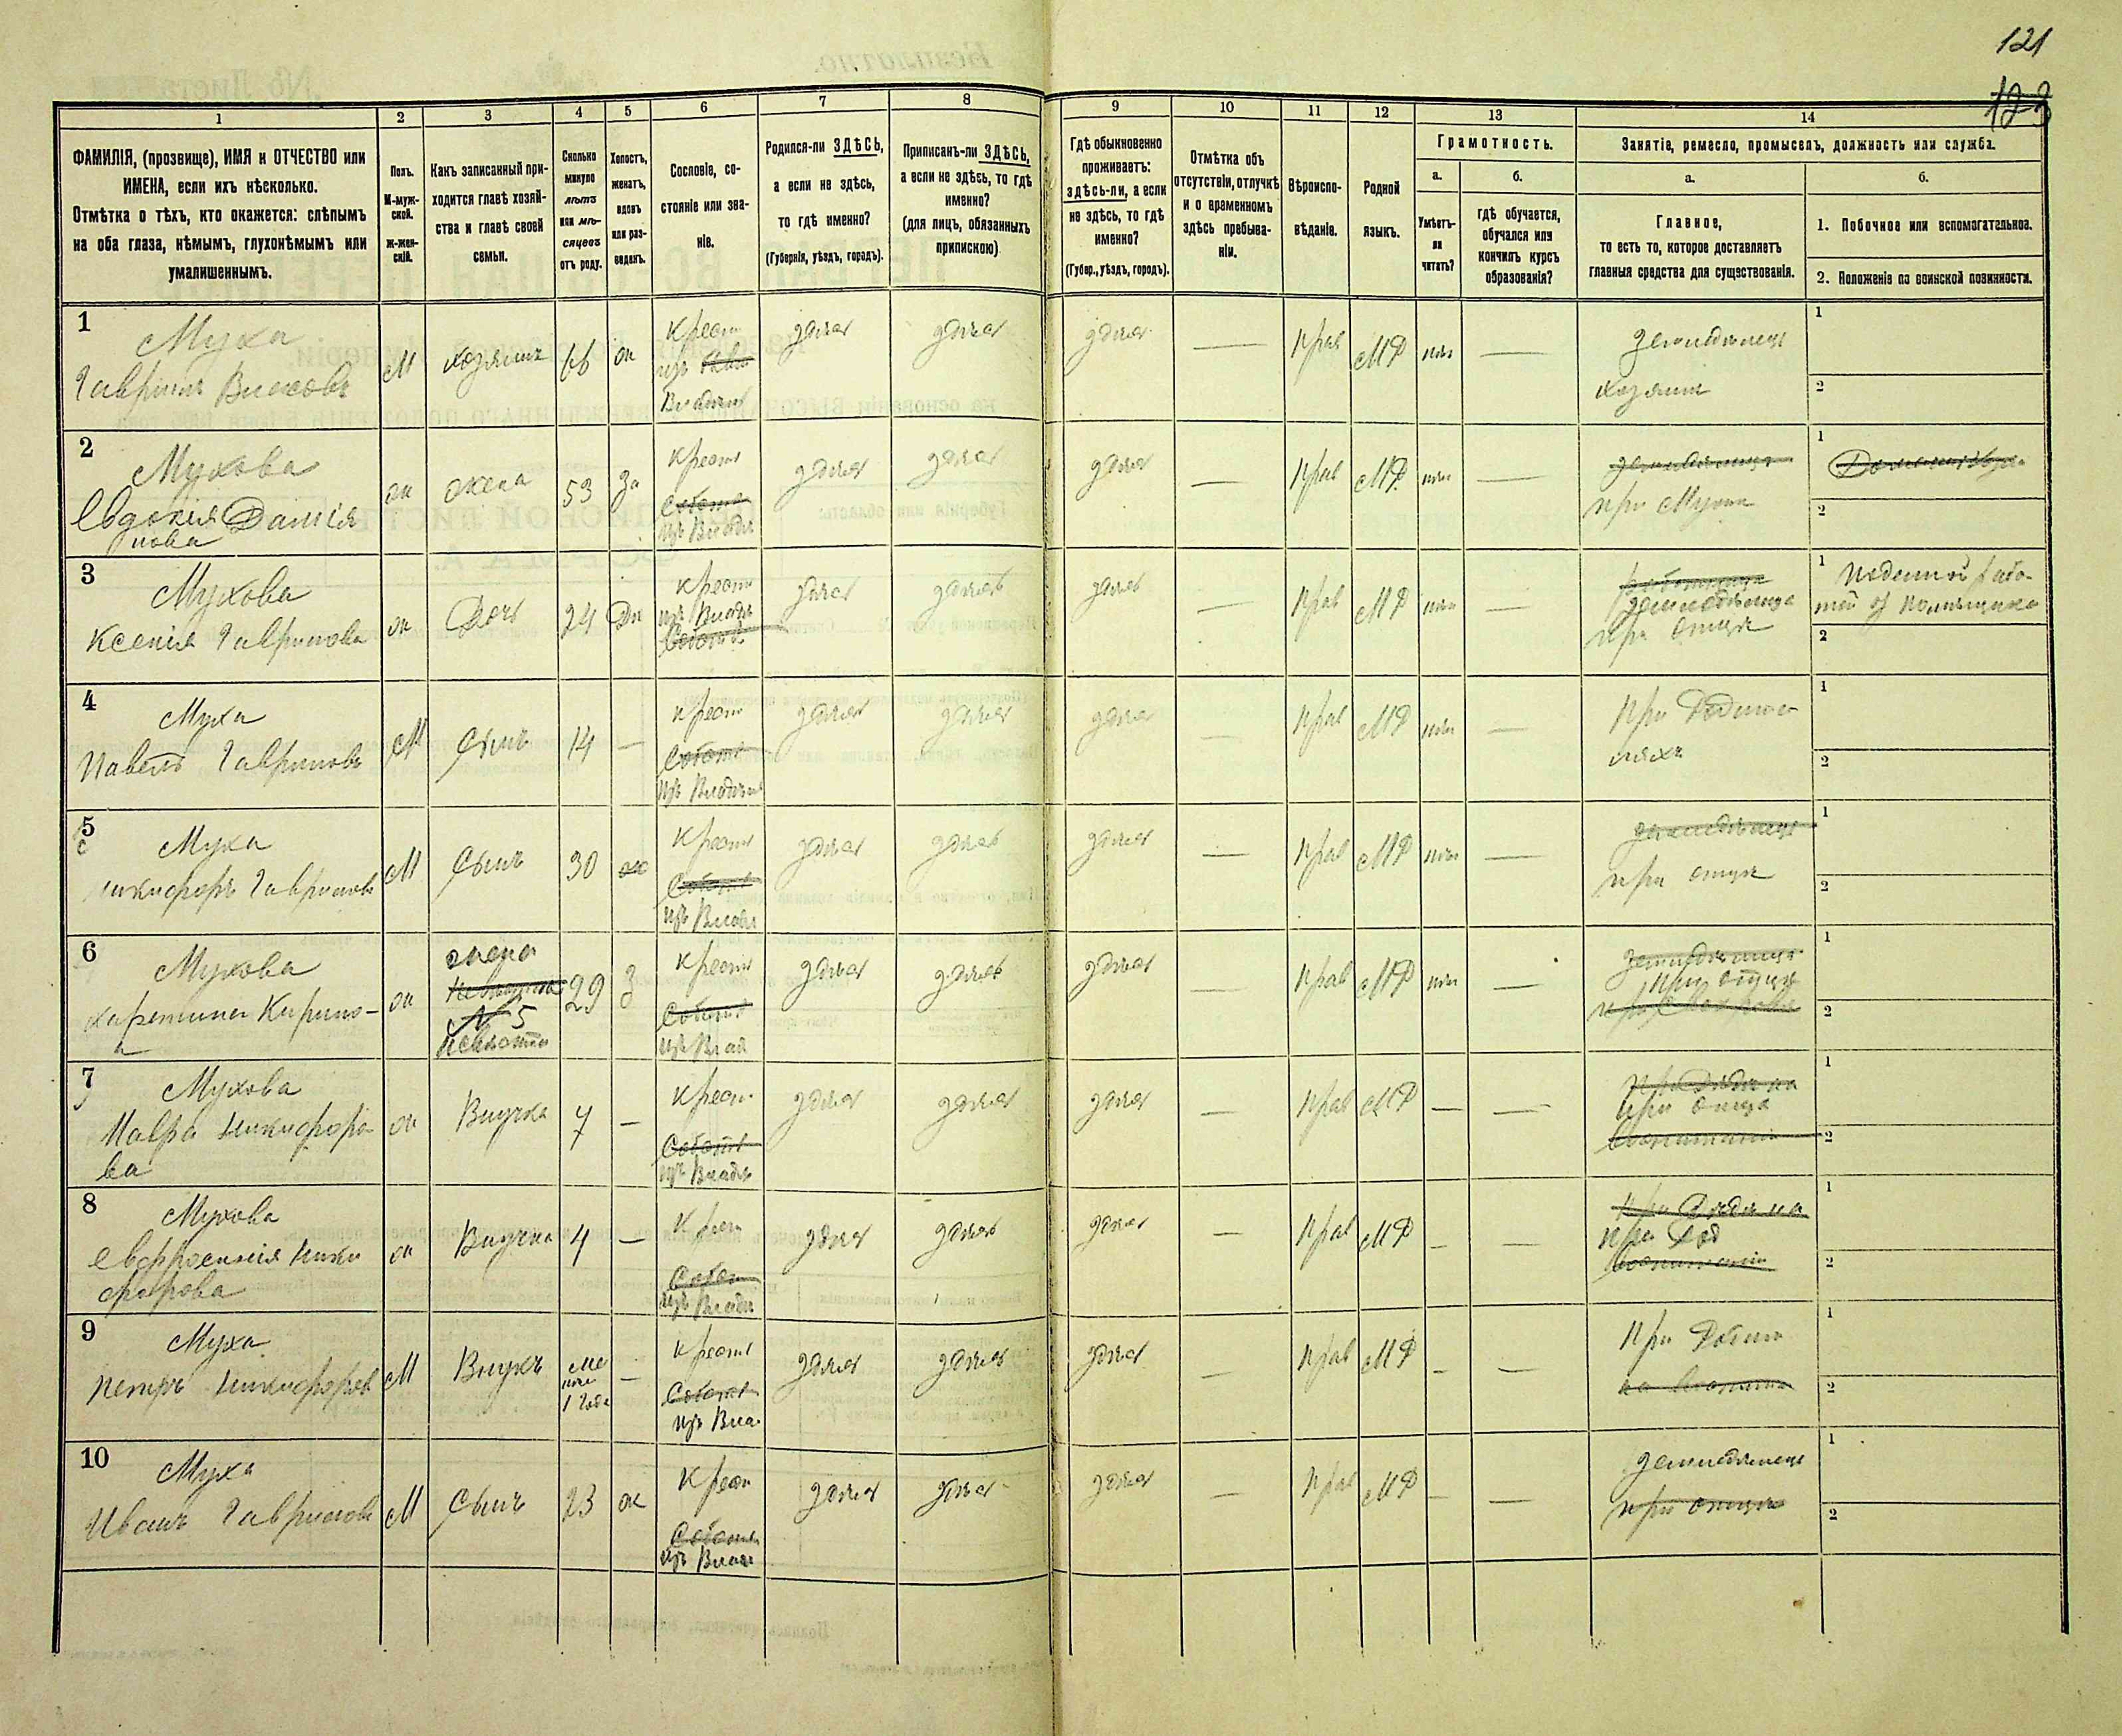 121
123
1
2
3
4
5
6
7
8
9
10
11
12
13
14
ФАМИЛІЯ, (прозвище), ИМЯ и ОТЧЕСТВО или
ИМЕНА, если ихъ нѣсколько.
Отмѣтка о тѣхъ, кто окажется: слѣпымъ
на оба глаза, нѣмымъ, глухонѣмымъ или
умалишеннымъ.
Полъ.
М-муж-
ской.
Ж-жен-
скій.
Какъ записанный при-
ходится главѣ хозяй-
ства и главѣ своей
семьи.
Сколько
минуло
лѣтъ
или мѣ-
сяцевъ
отъ роду.
Холостъ,
женатъ,
вдовъ
или раз-
веденъ.
Сословіе, со-
стояніе или зва-
ніе.
Родился-ли ЗДѢСЬ,
а если не здѣсь,
то гдѣ именно?
(Губернія, уѣздъ, городъ).
Приписанъ-ли ЗДѢСЬ,
а если не здѣсь, то гдѣ
именно?
(для лицъ, обязанныхъ
припискою)
Гдѣ обыкновенно
проживаетъ:
здѣсь-ли, а если
не здѣсь, то гдѣ
именно?
(Губер., уѣздъ, городъ).
Отмѣтка объ
отсутствіи, отлучкѣ
и о временномъ
здѣсь пребыва-
ніи.
Вѣроиспо-
вѣданіе.
Родной
языкъ.
Грамотность.
а.
Умѣетъ-
ли
читать?
б.
гдѣ обучается,
обучался или
кончилъ курсъ
образованія?
Занятіе, ремесло, промыселъ, должность или служба.
а.
Главное,
то есть то, которое доставляетъ
главныя средства для существованія.
б.
1. Побочное или вспомогательное.
2. Положеніе по воинской повинности.
1
Муха
Гавріилъ Власовъ
М
хозяинъ
66
ж
Крест
изъ
Владѣл
здѣсь
здѣсь
здѣсь
—
Прав
МР
нѣт
—
земледѣлецъ
хозяинъ
1
2
2
Мухова
Евдокія Даніи
лова
ж
жена
53
За
Крест
Собств
изъ Владѣ
здѣсь
здѣсь
здѣсь
—
Прав
МР
нѣт
—
земледѣлица
при Мужѣ
1
2
3
Мухова
Ксенія Гаврилова
ж
Дочь
24
Дѣ
Крест
изъ Владѣ
Собств
здѣсь
здѣсь
здѣсь
—
Прав
МР
нѣт
—
земледѣлица
при отцѣ
1
2
4
Муха
Павелъ Гавриловъ
М
Сынъ
14
—
Крест
Собств
изъ Владѣл
здѣсь
здѣсь
здѣсь
—
Прав
МР
нѣт
—
1
2
5
Муха
Никифоръ Гавриловъ
М
Сынъ
30
ж
Крест
Собств
изъ Владѣ
здѣсь
здѣсь
здѣсь
—
Прав
МР
нѣт
—
земледѣлецъ
при отцѣ
1
2
6
Мухова
ж
жена
№ 5
Невѣстка
29
З
Крест
Собств
изъ Влад
здѣсь
здѣсь
здѣсь
—
Прав
МР
нѣт
—
земледѣлица
1
2
7
Мухова
Мавра Никифоро-
ва
ж
Внучка
7
—
Крест
Собств
изъ Владѣ
здѣсь
здѣсь
здѣсь
—
Прав
МР
—
—
1
2
8
Мухова
Евфросинія Ники
форова
ж
Внучка
4
—
Крест
Собст
изъ Владѣ
здѣсь
здѣсь
здѣсь
—
Прав
МР
—
—
1
2
9
Муха
Петръ Никифоров
М
Внукъ
ме
нѣе
1 года
—
Крест
Собств
изъ Вла
здѣсь
здѣсь
здѣсь
—
Прав
МР
—
—
1
2
10
Муха
Иванъ Гавриловъ
М
Сынъ
23
ж
Крест
Собств
изъ Владѣ
здѣсь
здѣсь
здѣсь
—
Прав
МР
—
—
земледѣлецъ
при отцѣ
1
2